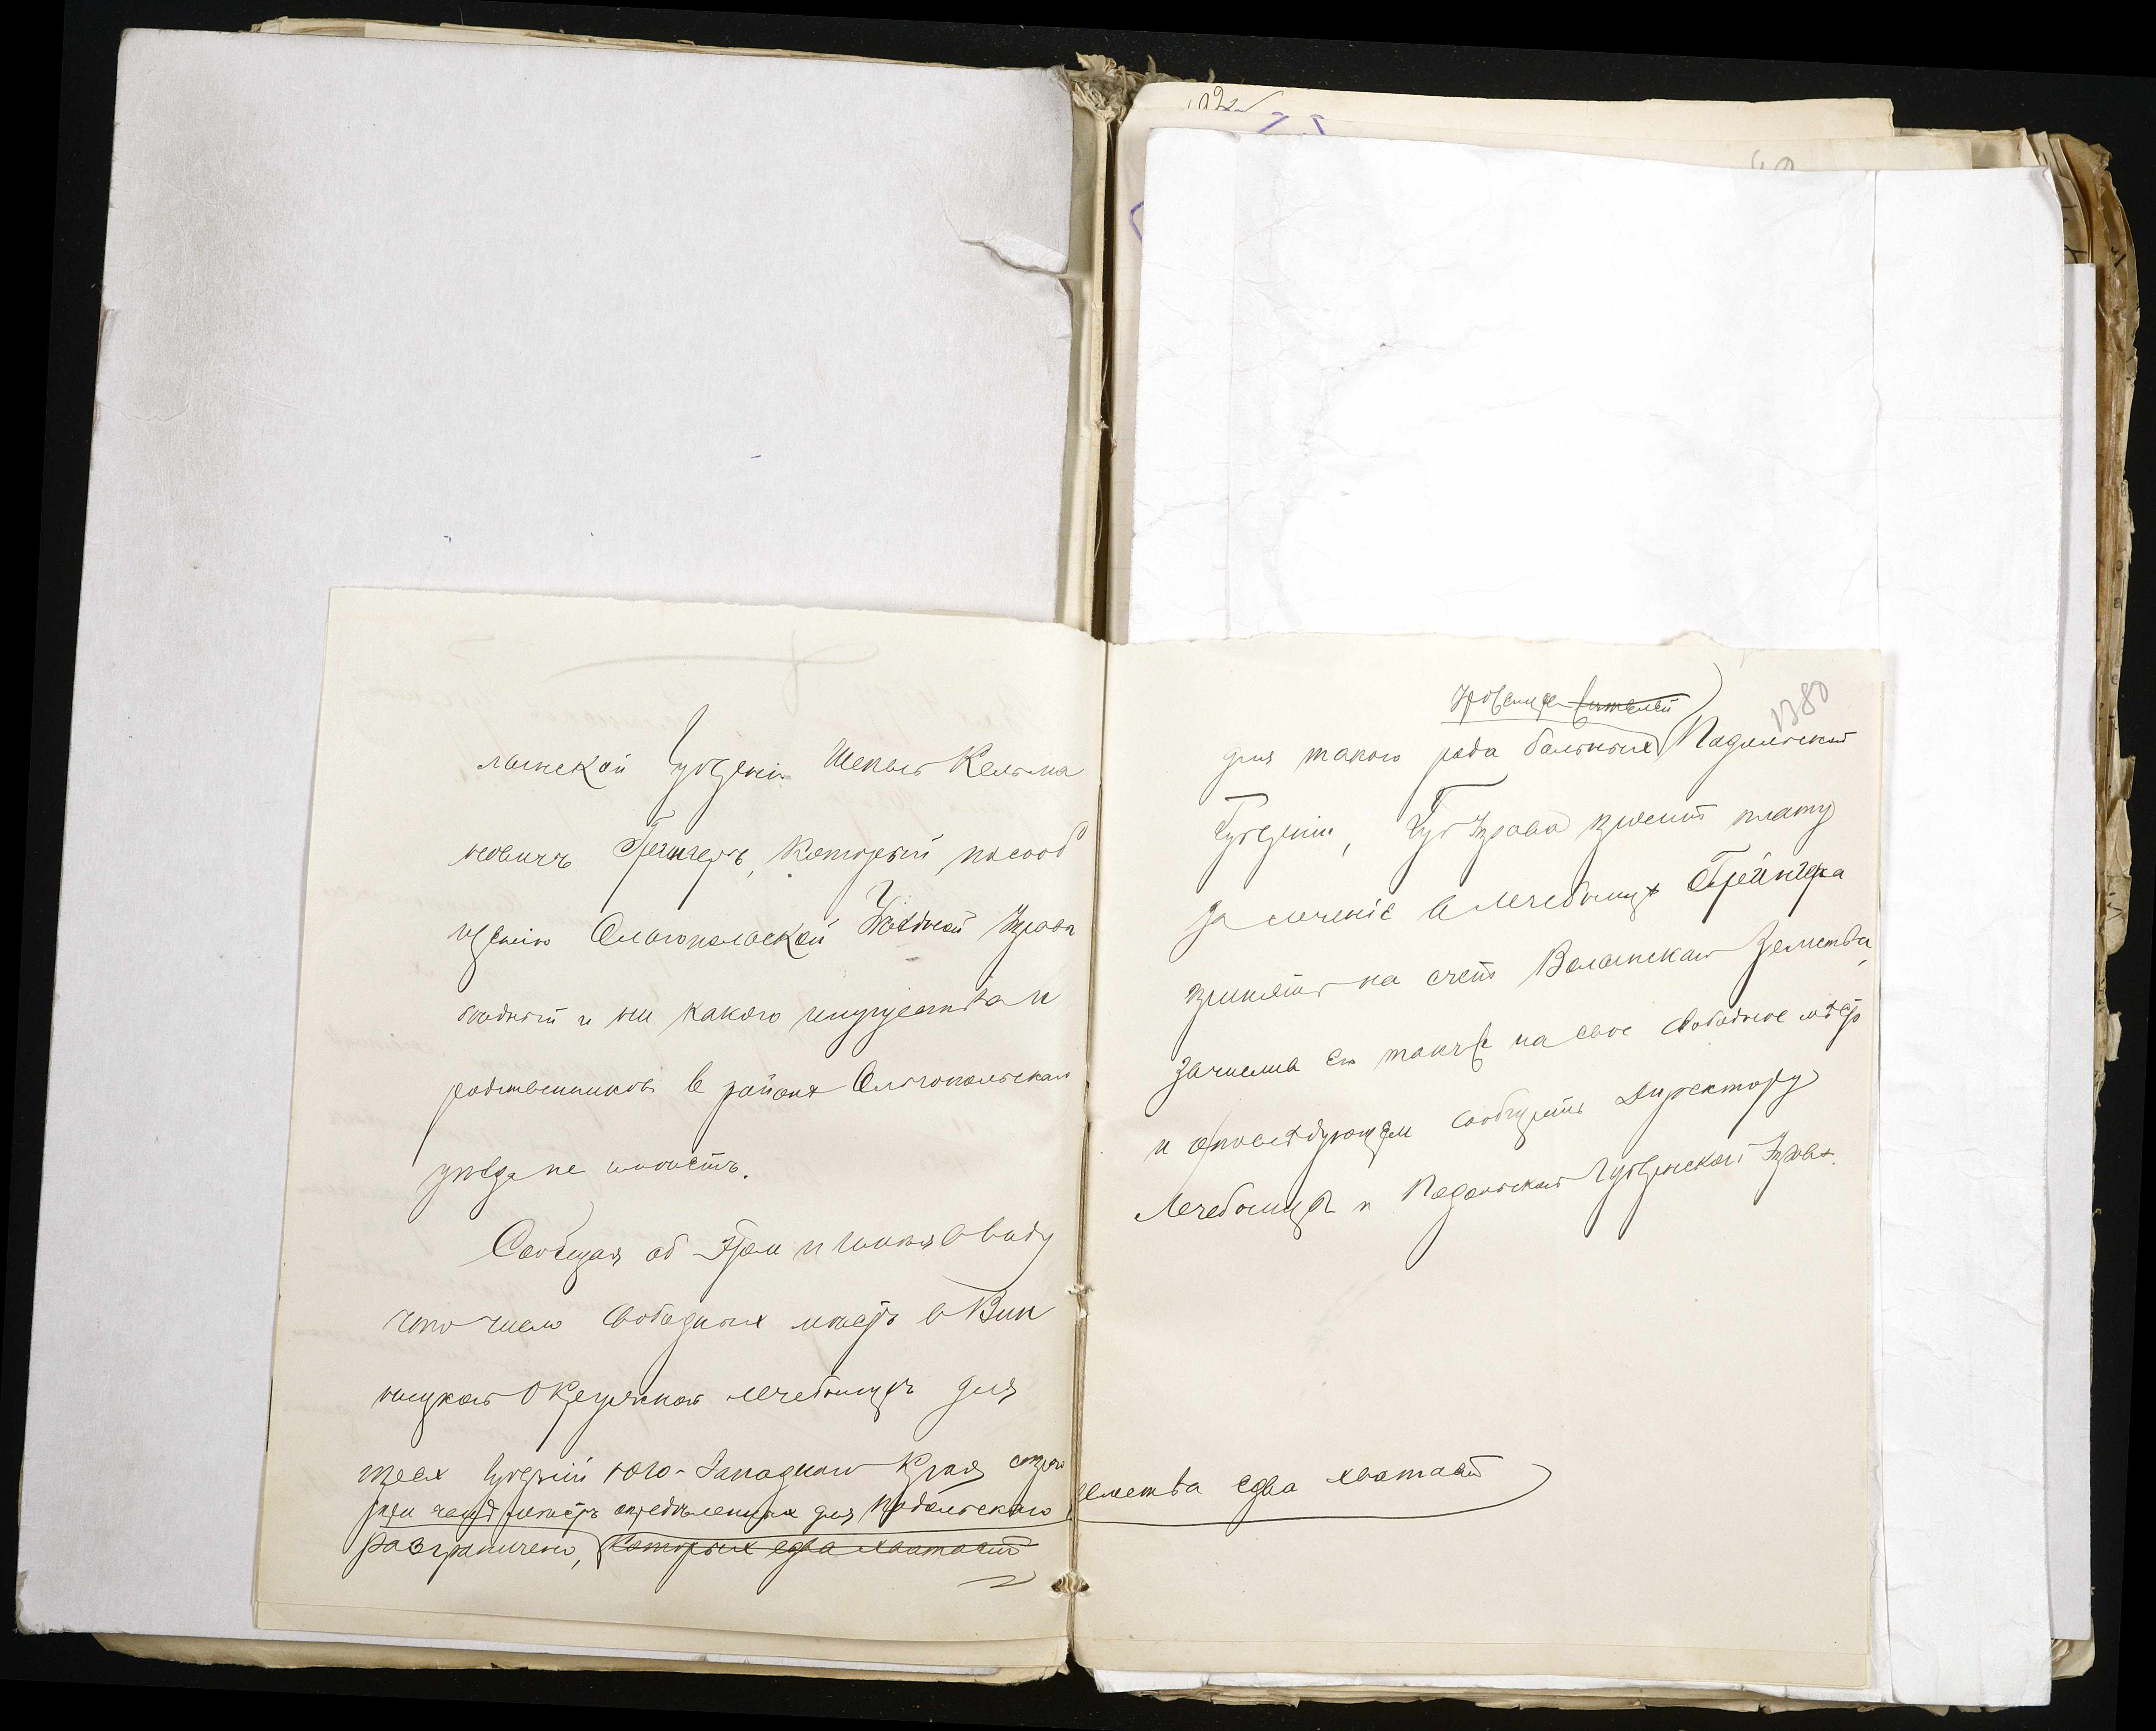 лынской Губерніи Шепыл Кельма
новичъ Грейнгеръ, который по сооб
щенію Ольгопольской Уѣздной Управы
бѣдный и ни какого имущества и
родственниковъ въ районѣ Ольгопольскаго
уѣзда не имѣетъ.
Сообщая об этом и имѣя в виду
что число свободных мѣстъ в Вин
ницкой Окружной лечебницѣ для
трех губерній Юго-Западнаго Края строго
разграничено, которых едва хватает
при чемъ мѣстъ определенных для Подольскаго земства едва хватает
1380
для такого рода больных Подольской
Губерніи, Губ Управа просит плату
за леченіе в лечебницѣ Грейнгера
принять на счетъ Волынскаго Земства,
зачислив его также на свое свободное мѣсто
и о послѣдующем сообщить Директору
Лечебницы и Подольской Губернской Управѣ.